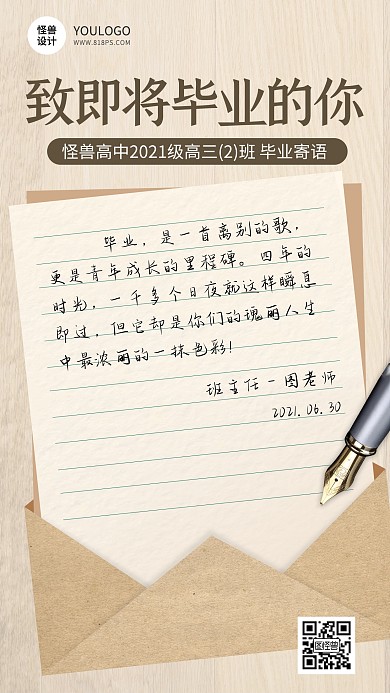 怪兽
设计
YOULOGO
WWW.818PS.COM
致即将毕业的你
怪兽高中2021级高三(2)班 毕业寄语
毕业，是一首离别的歌，
更是青年成长的里程碑。四年的
时光，一千多个日夜就这样瞬息
即过，但它却是你们的瑰丽人生
中最浓丽的一抹色彩！
班主任-图老师
2021.06.30
图怪兽